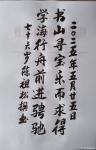 二〇二五年五月廿五日
书山寻宝乐而求得
学海行舟前进骋驰
七十六岁陈祖松撰并书